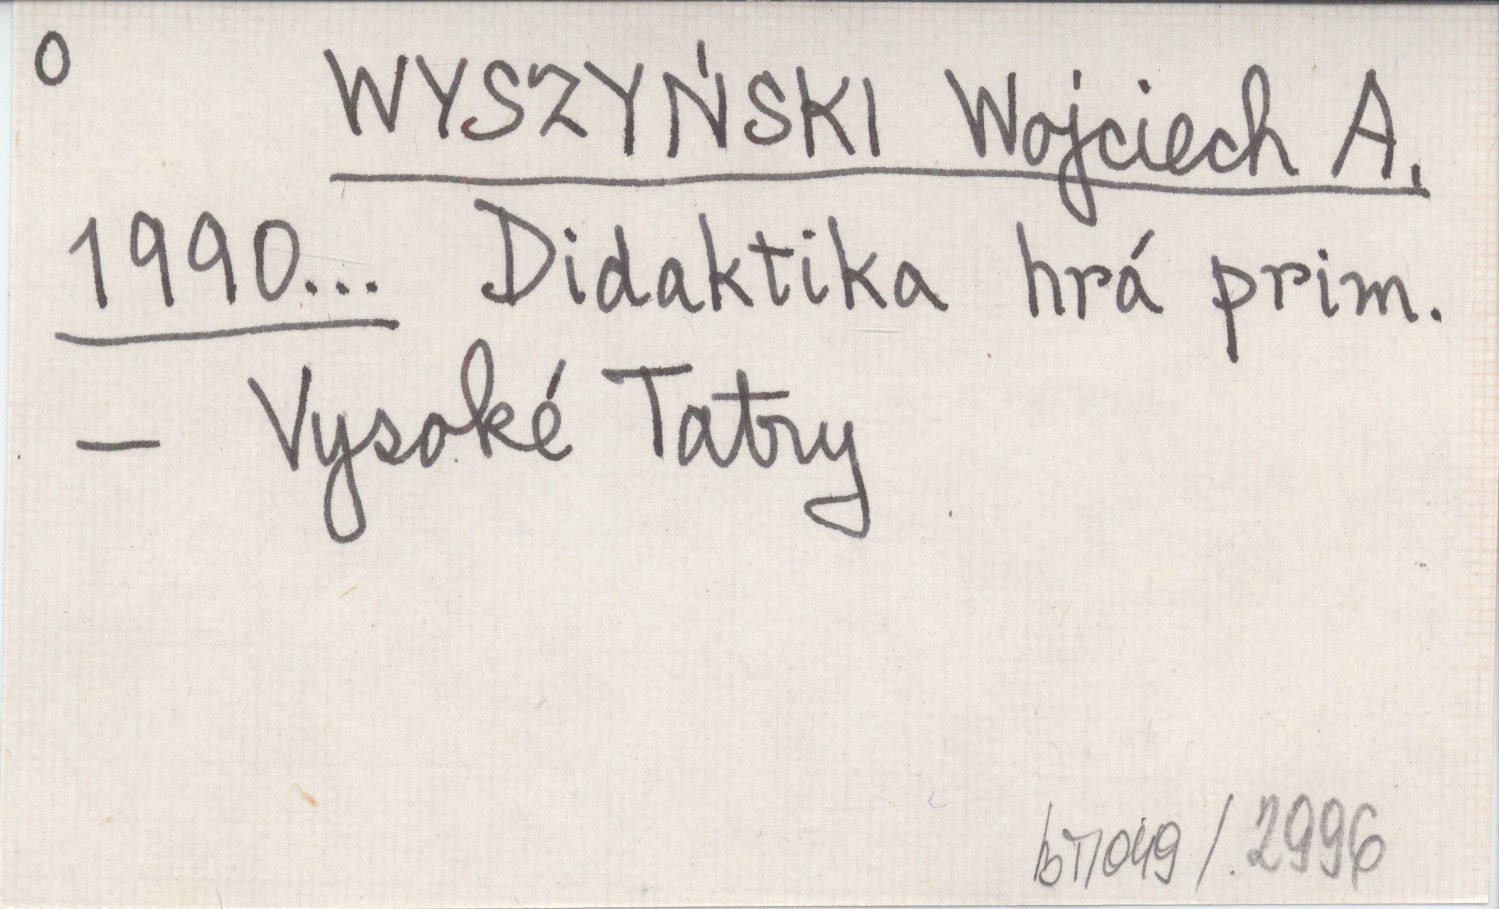 O WYSZYŃSKI Wojciech A.
1990... Didaktika hrá prim.
– Vysoké Tatry
/ 2996